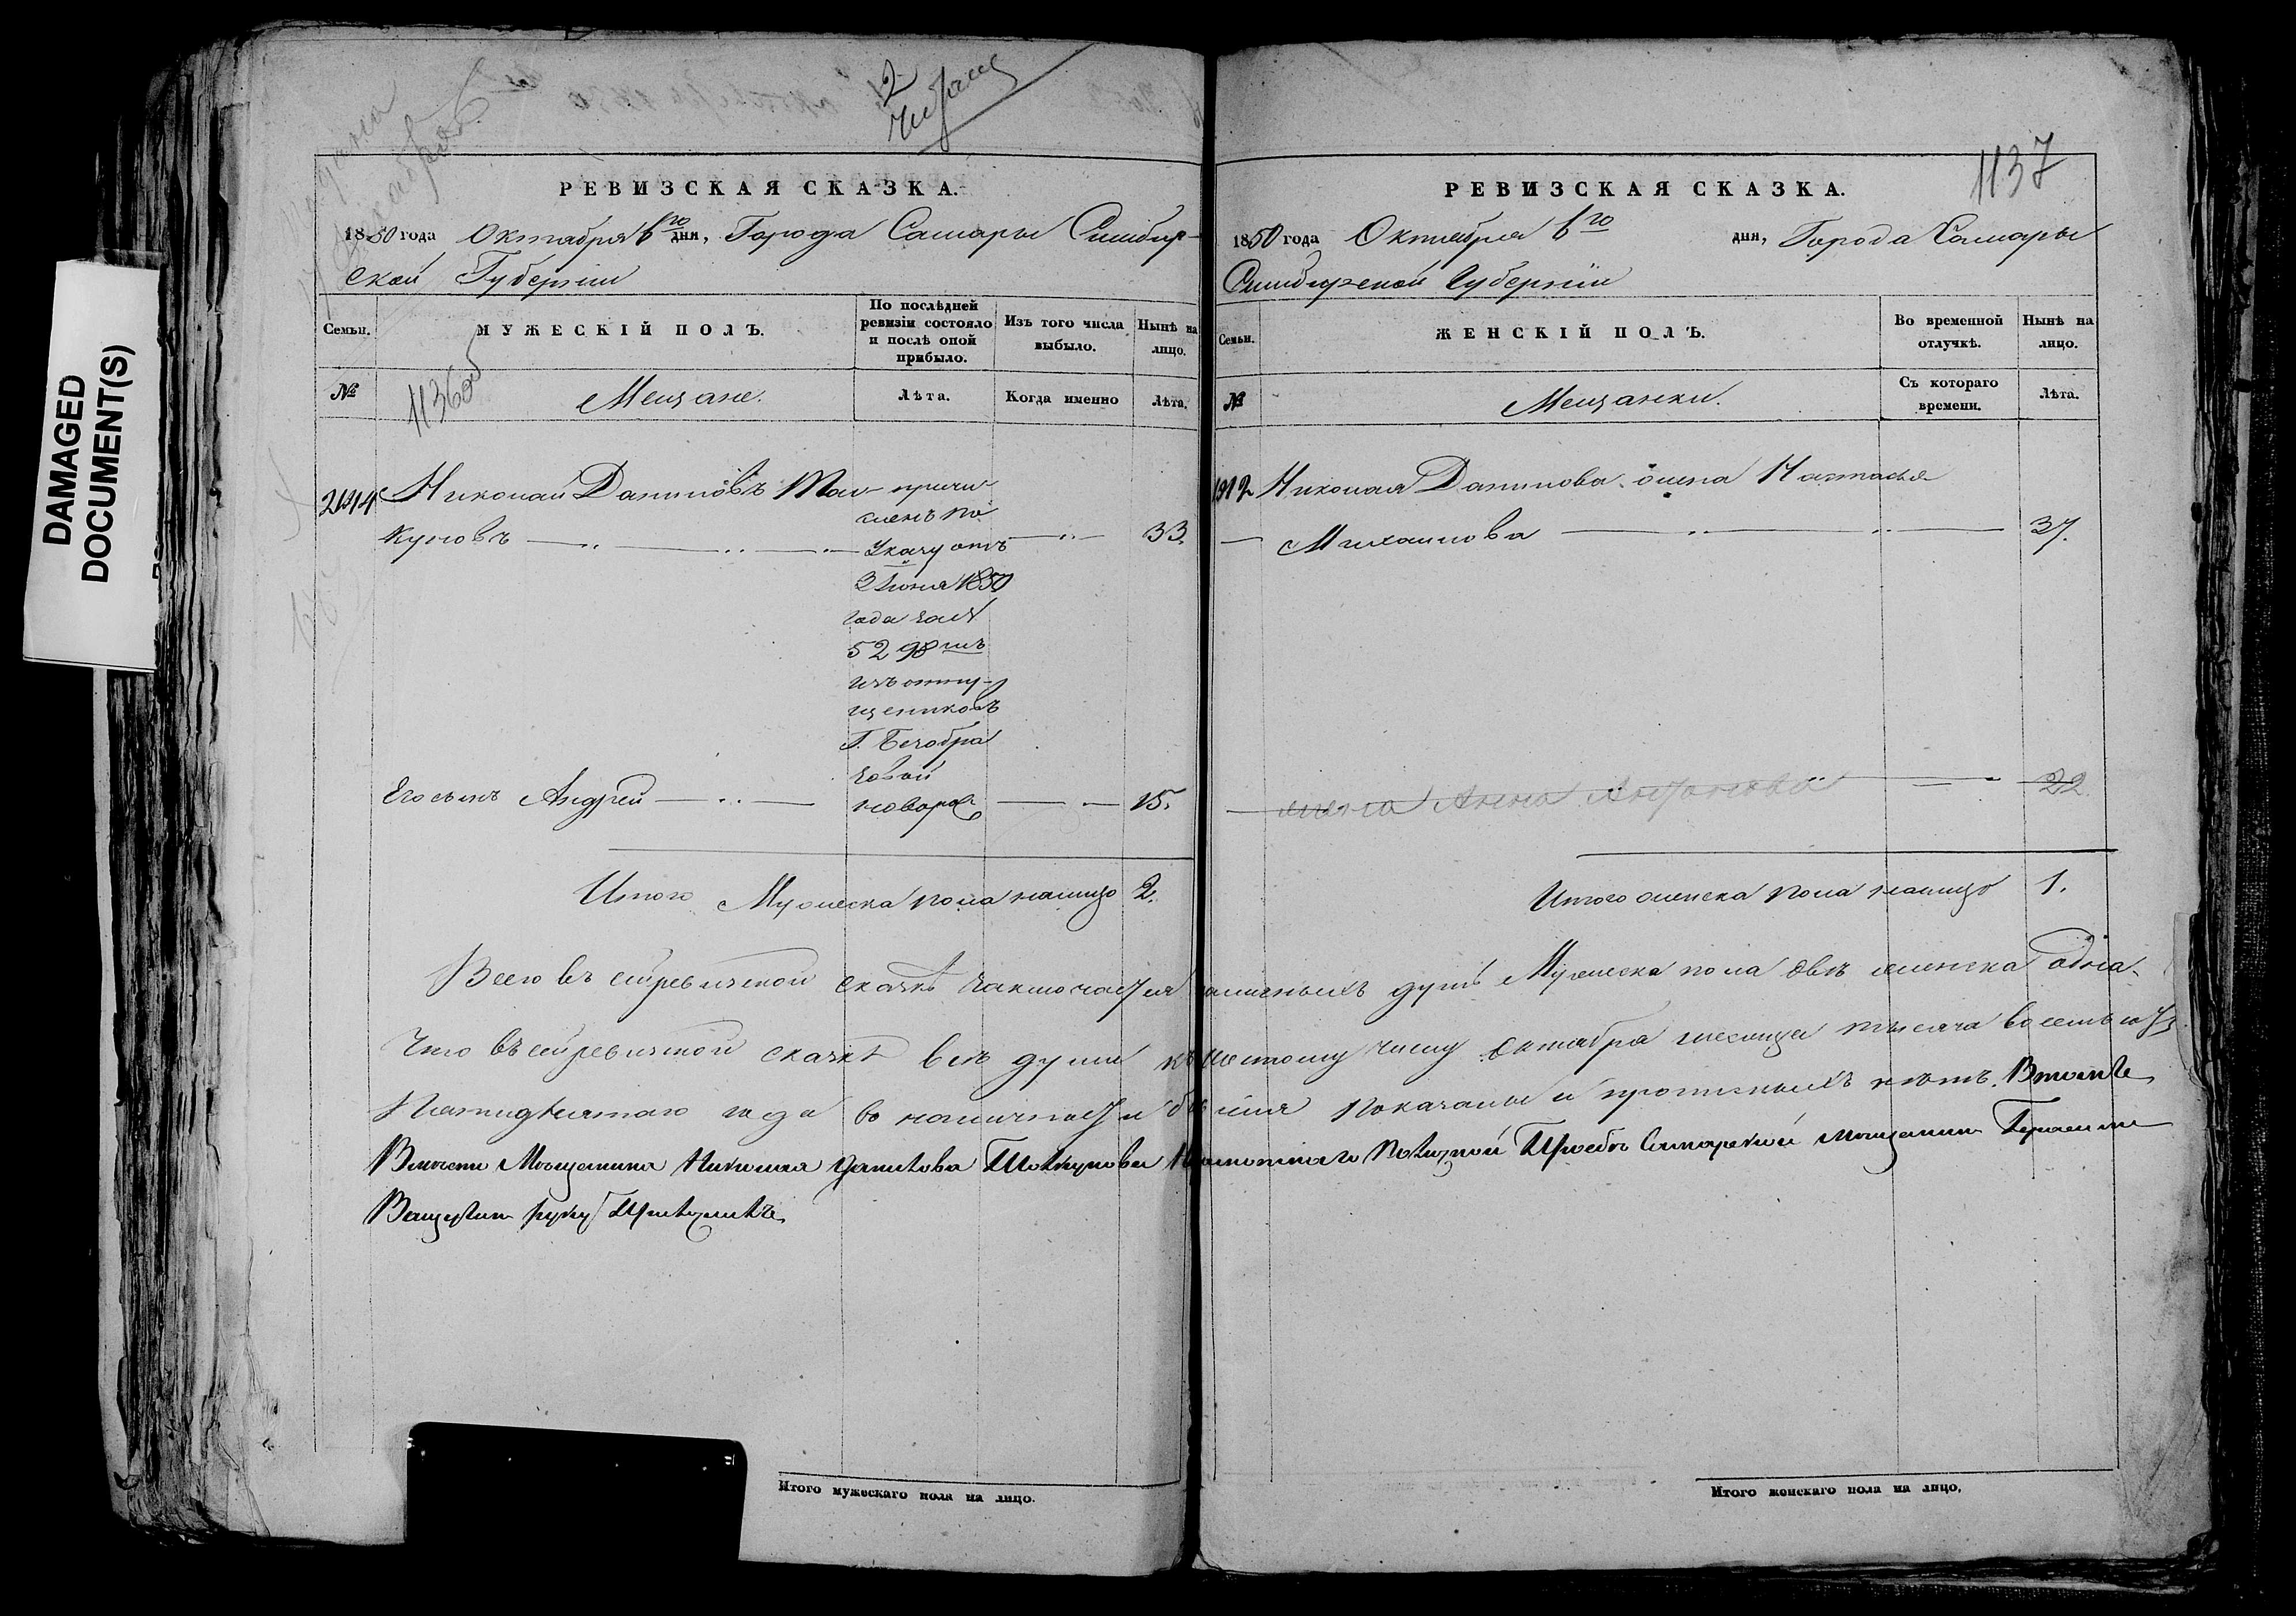 DAMAGED
DOCUMENT(S)
12
РЕВИЗСКАЯ СКАЗКА.
1850 года Октября 6го дня, Города Самары Симбир-
ской Губернии
Семьи.
МУЖЕСКІЙ ПОЛЪ.
По послѣдней ревизіи состояло и послѣ оной прибыло.
Изъ того числа выбыло.
Нынѣ на лицо.
№
1136об
Мещане.
Лѣта.
Когда именно
Лѣта.
Николай Даниловъ Тол-
куновъ
причи-
сленъ по
Указу отъ
3 Іюня 1850
года за №
5298мъ
изъ отпу-
щениковъ
Г. Безобра
зовой
33.
Его сынъ Андрей
новорож
15.
Итого Мужеска пола налицо 2.
РЕВИЗСКАЯ СКАЗКА.
1137
1850 года Октября 6го дня, Города Самары
Симбирской Губерніи
Семьи.
ЖЕНСКІЙ ПОЛЪ.
Во временной отлучкѣ.
Нынѣ на лицо.
№
Мещанки.
Съ котораго времени.
Лѣта.
1912 Николая Данилова жена Настасья
Михаилова 37.
жена Анна 22
Итого женска пола налицо 1.
Всего въ сей ревизской сказкѣ заключается наличныхъ душъ Мужеска пола двѣ женска одна.
Что въ сей ревизской сказкѣ всѣ души къ шестому числу Октября месяца тысяча восемь сотъ
Пятидесятаго года в наличности бывшия показаны и прописныхъ нѣтъ. Вместе
Мещанина Николая Данилова Толкунова Самарской мещанин Герасим
руку
Итого мужескаго пола на лицо.
Итого женскаго пола на лицо.